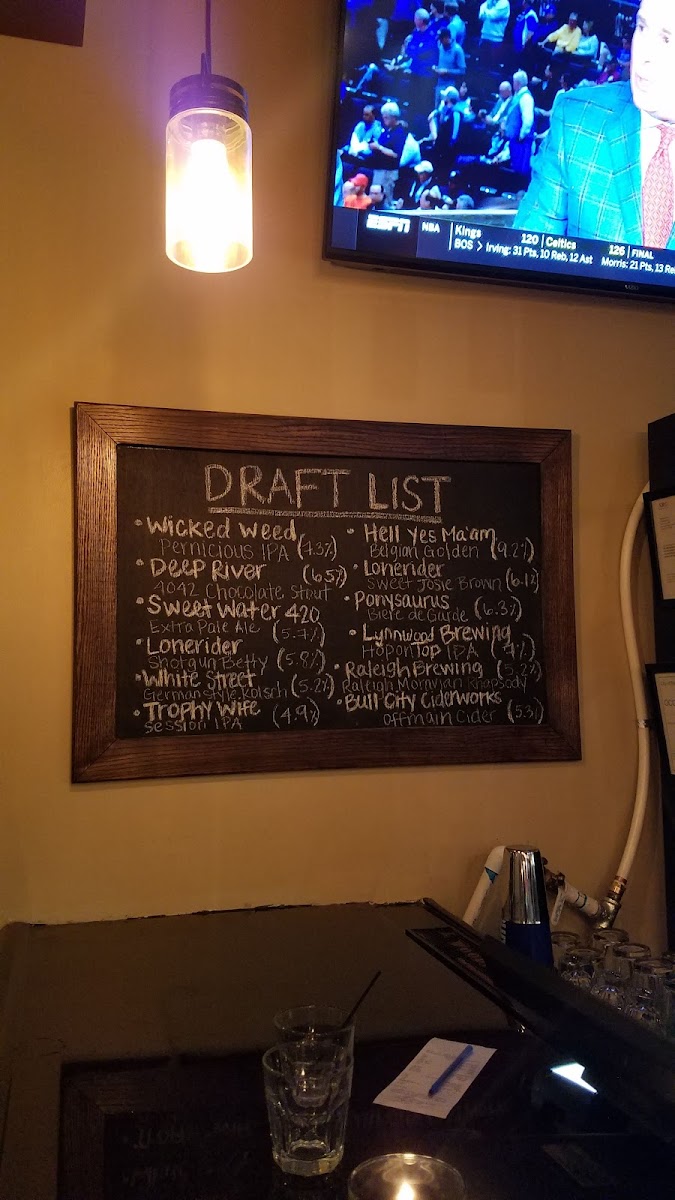 ESPN
NBA
Kings 120 Celtics 126 FINAL
BOS > Irving: 31 Pts, 10 Reb, 12 Ast Morris: 21 Pts, 13 Re
DRAFT LIST
• Wicked Weed
Pernicious IPA (7.3%)
• Deep River (6.5%)
4042 Chocolate Stout
• Sweet Water 420
Extra Pale Ale (5.7%)
• Lonerider
Shotgun Betty (5.8%)
• White Street
German Style Kolsch (5.2%)
• Trophy Wife (4.9%)
Session IPA
• Hell Yes Ma'am
Belgian Golden (9.2%)
• Lonerider
Sweet Josie Brown (6.1%)
• Ponysaurus
Biere de Garde (6.3%)
• Lynnwood Brewing
Hop on Top IPA (7%)
• Raleigh Brewing (5.2%)
Raleigh Moravian Rhapsody
• Bull City Ciderworks
Off main Cider (5.3%)